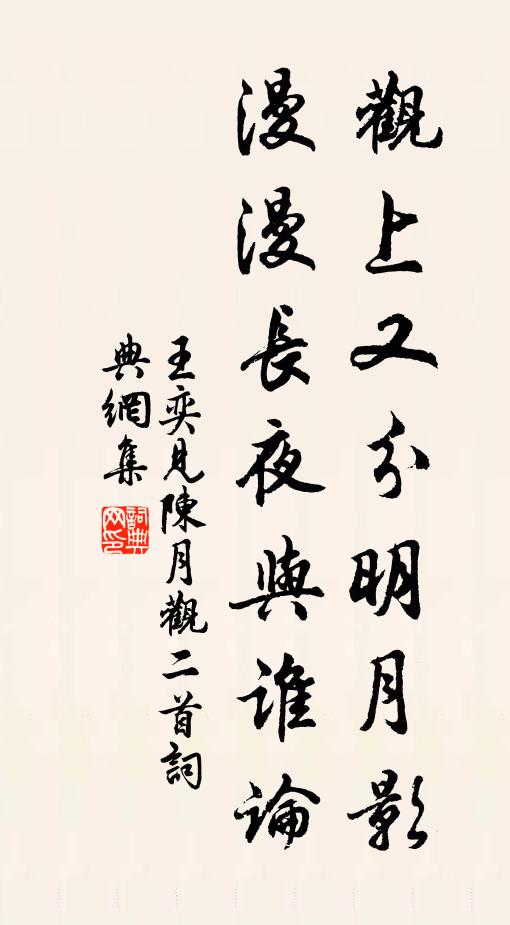 觀上又分明月影
漫漫長夜與誰論
王奕見陳月觀二首詞
典網集
詞典
网印